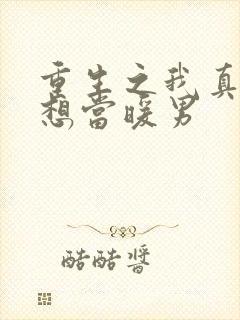 重生之我真
想當暖男
酷酷醬